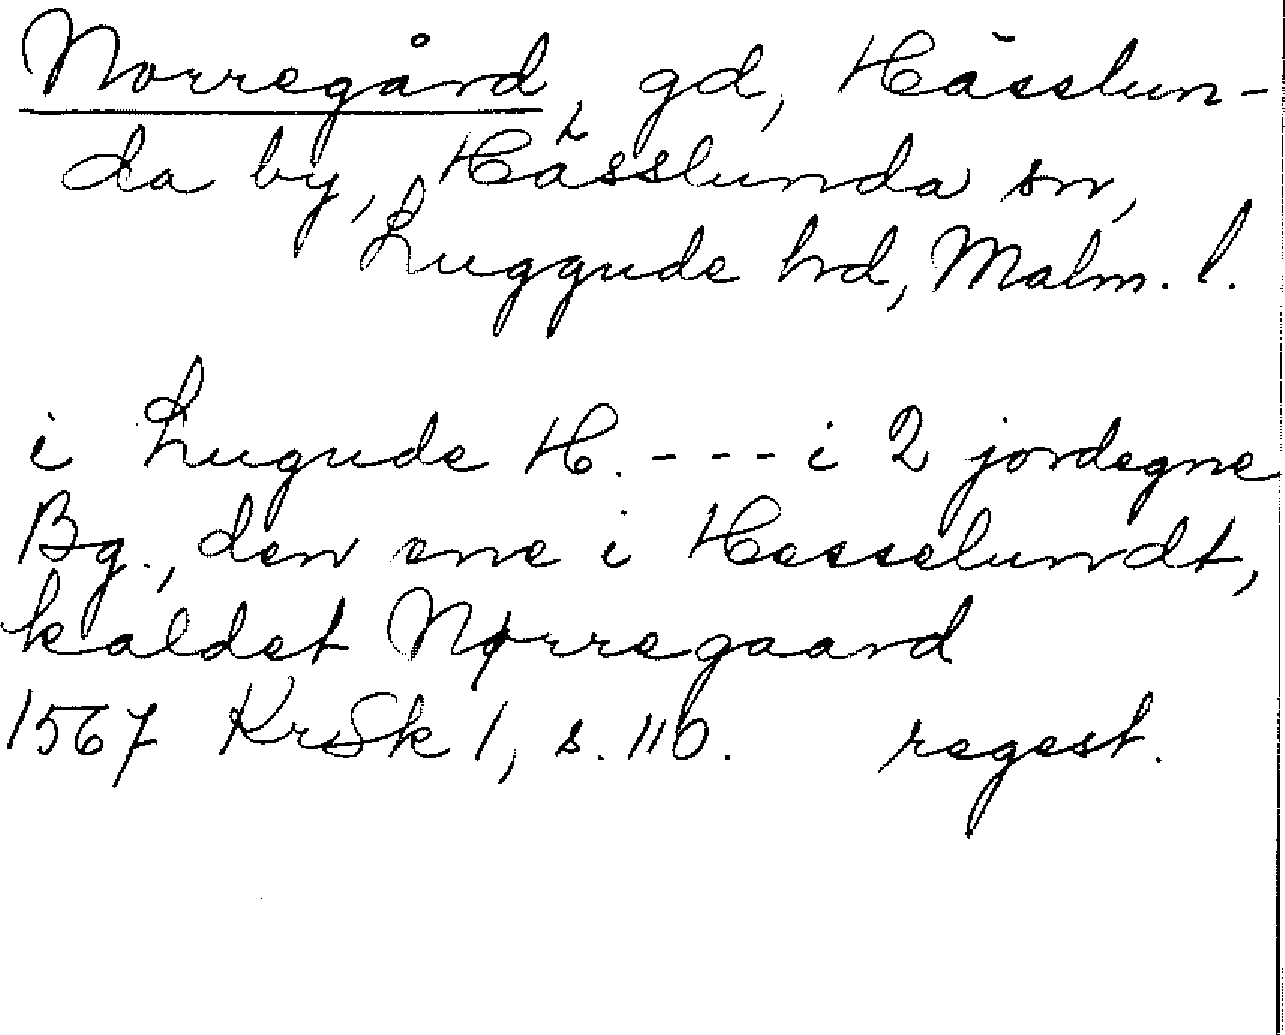 Norregård, gd, Hässlun-
da by, Hässlunda sn,
Luggude hd, Malm. l.
i Lugude H. --- i 2 jordegne
Bg., den ene i Hesselundt,
kaldet Nørregaard
1567 KrSk 1, s. 110. regest.